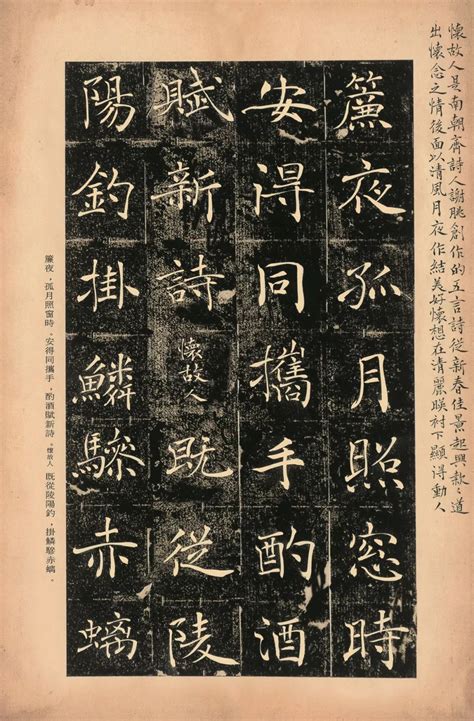 懷故人是南朝齊詩人謝朓創作的五言詩從新春佳景起興款款道
出懷念之情後面以清風月夜作結美好懷想在清麗映衬下顯得動人
簾夜孤月照窓時
安得同攜手酌酒
賦新詩懷故人既從陵
陽釣掛鱗驂赤螭
簾夜，孤月照窗時。安得同攜手，酌酒賦新詩。懷故人 既從陵陽釣，掛鱗驂赤螭。